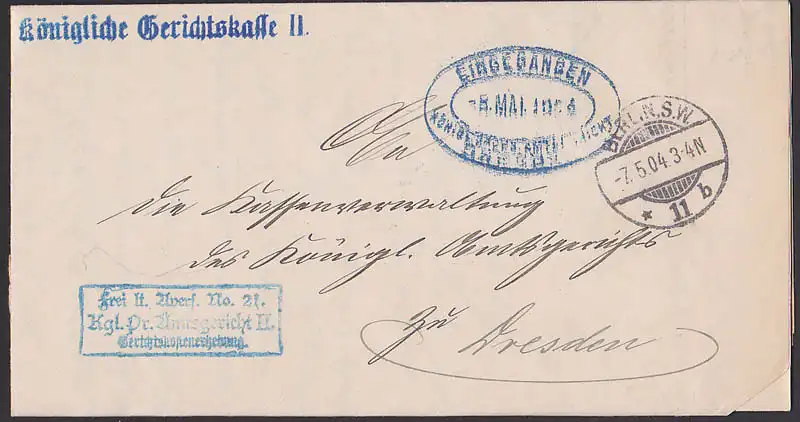 Königliche Gerichtskasse II.
EINGEGANGEN
MAI 1904
KÖNIGL.
DRESDEN
BERLIN.S.W.
-7.5.04.3-4N
* 11 b
An
die Kassenverwaltung
des Königl. Amtsgerichts
zu Dresden
Frei lt. Avers. No. 21.
Kgl. Pr. Amtsgericht II.
Gerichtskostenerhebung.